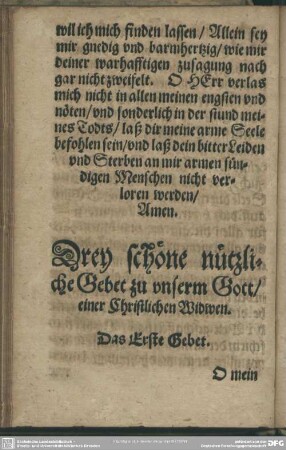 wil ich mich finden lassen / Allein sey
mir gnedig vnd barmhertzig / wie mir
deiner warhafftigen zusagung nach
gar nicht zweifelt. O HErr verlas
mich nicht in allen meinen engsten vnd
nöten / vnd sonderlich in der stund mei-
nes Todts / laß dir meine arme Seele
befohlen sein / vnd laß dein bitter Leiden
vnd Sterben an mir armen sün-
digen Menschen nicht ver-
loren werden /
Amen.
Drey schöne nützli-
che Gebet zu vnserm Gott /
einer Christlichen Widwen.
Das Erste Gebet.
O mein